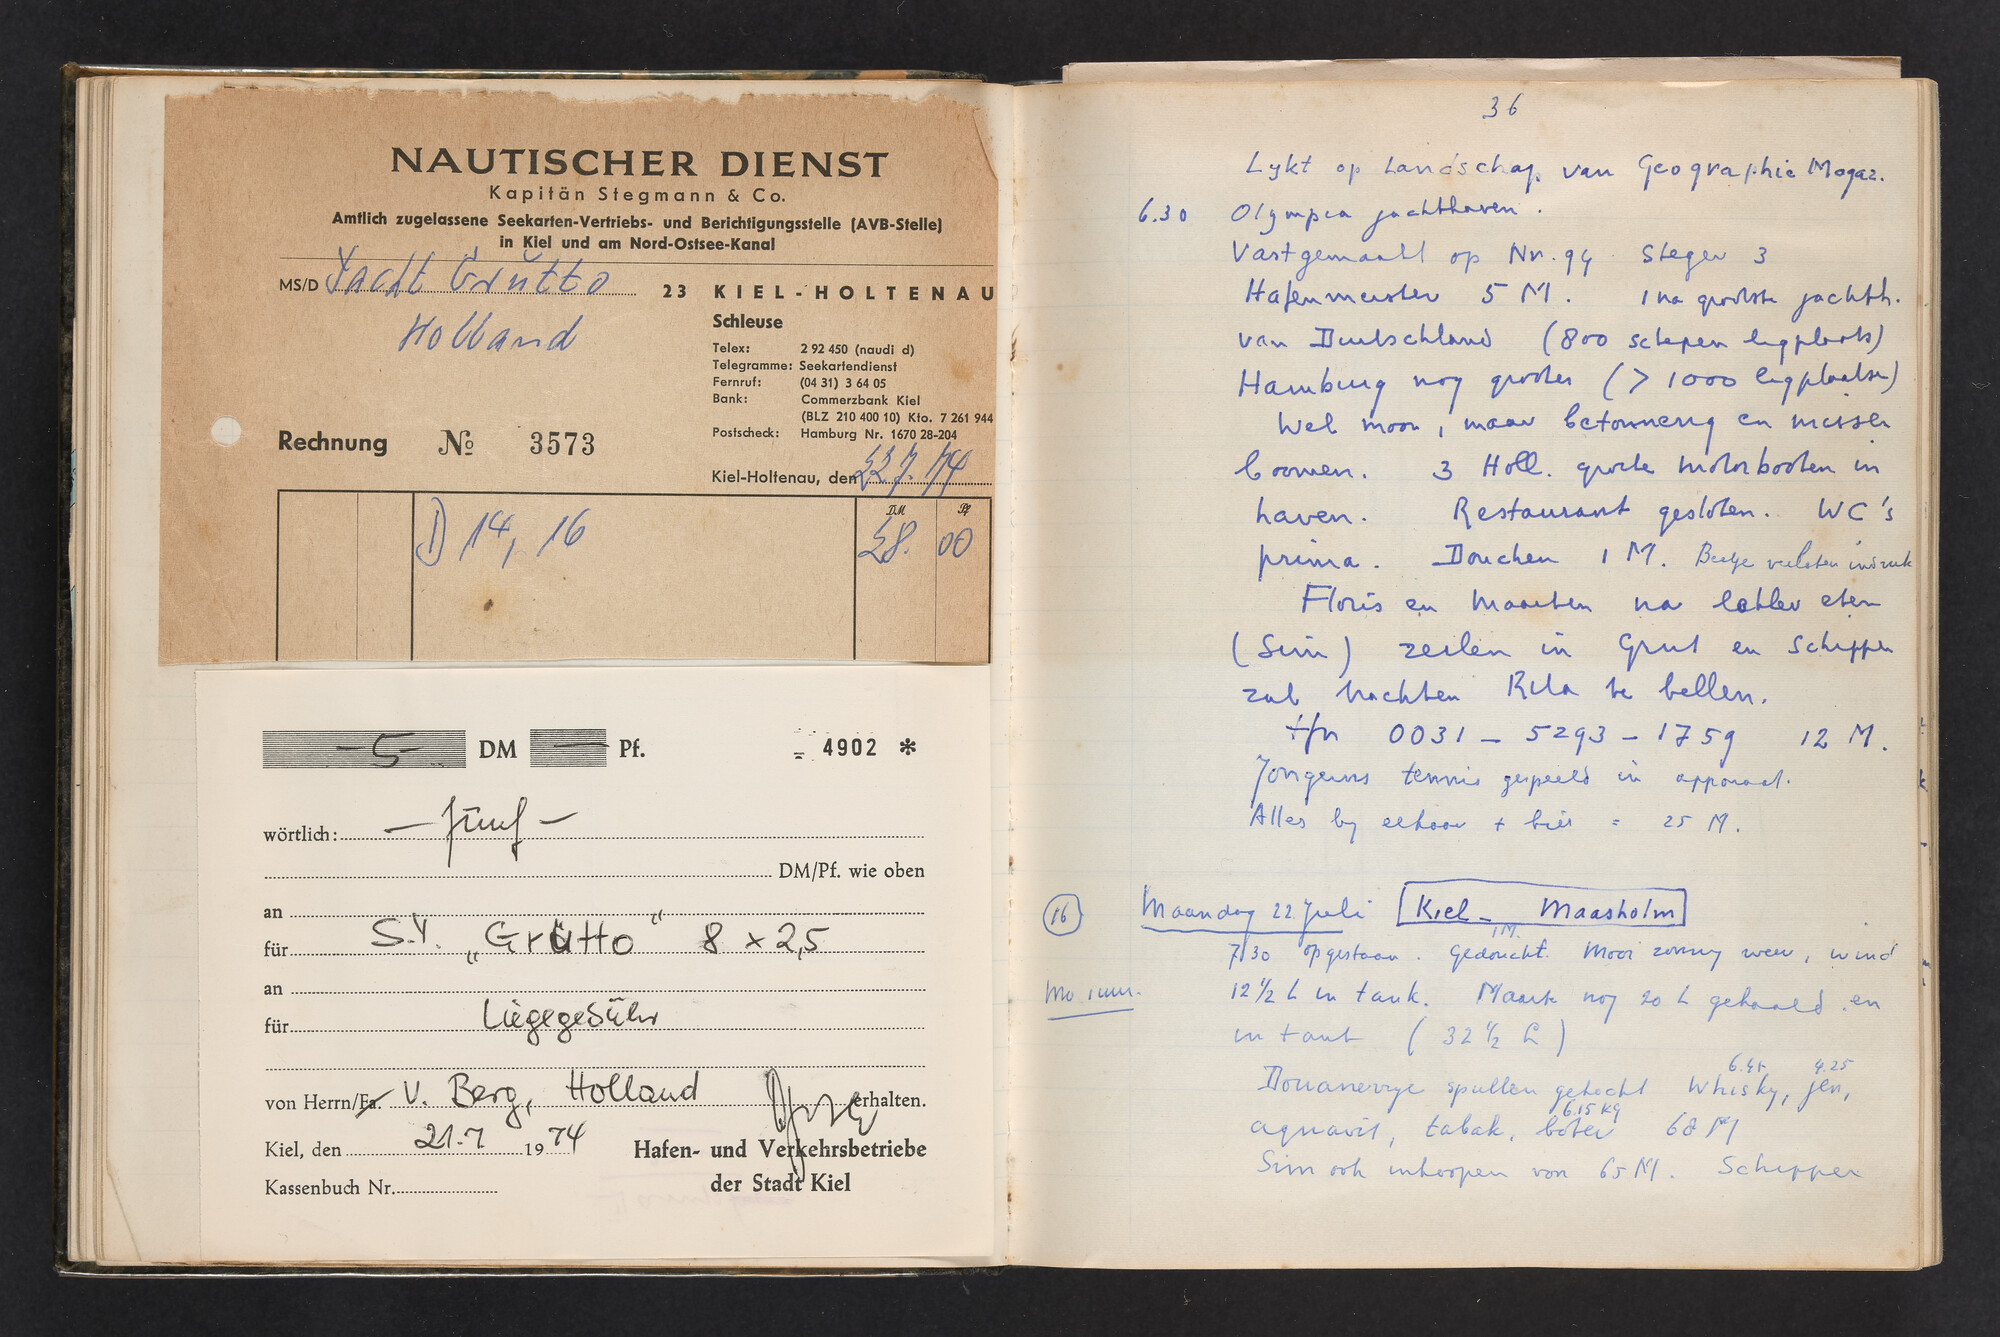 NAUTISCHER DIENST
Kapitän Stegmann & Co.
Amtlich zugelassene Seekarten-Vertriebs- und Berichtigungsstelle (AVB-Stelle)
in Kiel und am Nord-Ostsee-Kanal
MS/D Yacht Grütto
Holland
23 KIEL-HOLTENAU
Schleuse
Telex: 2 92 450 (naudi d)
Telegramme: Seekartendienst
Fernruf: (04 31) 3 64 05
Bank: Commerzbank Kiel
(BLZ 210 400 10) Kto. 7 261 944
Postscheck: Hamburg Nr. 1670 28-204
Rechnung № 3573
Kiel-Holtenau, den 22.7.74
DM Pf
D 14, 16 28. 00
-5- DM — Pf. 4902 *
wörtlich: — fünf —
DM/Pf. wie oben
an
für S.Y. „Grütto“ 8 x 2,5
an
für Liegegebühr
von Herrn/Fa. V. Berg, Holland erhalten.
Kiel, den 21.7 1974 Hafen- und Verkehrsbetriebe
der Stadt Kiel
Kassenbuch Nr.
36
Lykt op Landschap van Geographic Magaz.
6.30 Olympia jachthaven.
Vastgemaakt op Nr. 94 Steger 3
Hafenmeister 5 M. 1 na grootste jachth.
van Deutschland (800 schepen ligplaats)
Hamburg nog groter (> 1000 ligplaatsen)
Wel mooi, maar betonnerig en
boomen. 3 Holl. grote motorboten in
haven. Restaurant gesloten. WC's
prima. Douchen 1 M. Beetje verlaten indruk
Floris en Maarten na lekker eten
(Sim) zeilen in Grut en Schipper
zal trachten Rita te bellen.
tfn 0031 – 5293 – 1759 12 M.
Jongens tennis gespeeld in apparaat.
Alles by elkaar + bier = 25 M.
16 Maandag 22 Juli Kiel – Maasholm
1 M.
7.30 opgestaan. Gedoucht. Mooi zonnig weer, wind
12 1/2 L in tank. Maarten nog 20 L gehaald en
in tank (32 1/2 L)
6.45 4.25
spullen gekocht Whisky, jen,
6.15 kg
aquavit, tabak, boter 68 M
Sim ook inkoopen von 65 M. Schipper